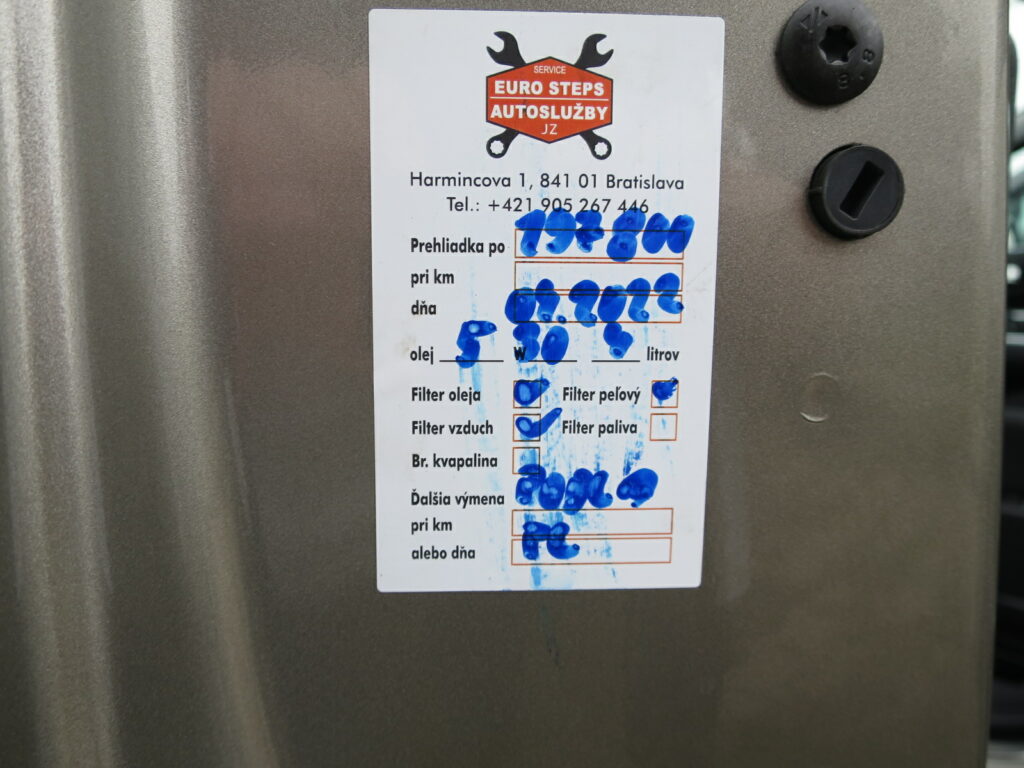 SERVICE
EURO STEPS
AUTOSLUŽBY
JZ
Harmincova 1, 841 01 Bratislava
Tel.: +421 905 267 446
Prehliadka po 197800
pri km
dňa
olej 5 W 30 litrov
Filter oleja Filter peľový
Filter vzduch Filter paliva
Br. kvapalina
Ďalšia výmena
pri km
alebo dňa
8.8